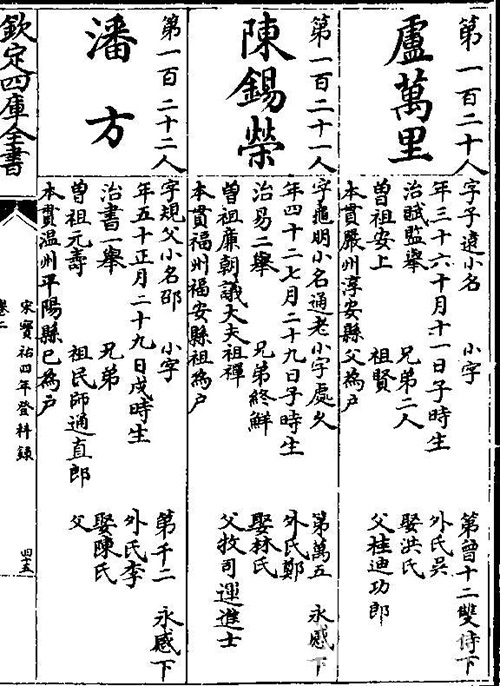 第一百二十人
盧萬里
字子遠小名 小字 第曾十二雙侍下
年三十六十月十一日子時生 外氏吳
治賦監舉 兄弟二人 娶洪氏
曾祖安上 祖賢 父桂迪功郎
本貫嚴州淳安縣父為户
第一百二十一人
陳錫榮
字龜明小名通老小字處久 第萬五 永感下
年四十二七月二十九日子時生 外氏鄭
治易二舉 兄弟終鮮 娶林氏
曾祖廉朝議大夫祖禪 父牧司運進士
本貫福州福安縣祖為户
第一百二十二人
潘方
字規父小名邵 小字 第千二 永感下
年五十正月二十九日戌時生 外氏李
治書一舉 兄弟 娶陳氏
曾祖元壽 祖民師通直郎 父
本貫温州平陽縣已為户
欽定四庫全書
宋寶祐四年登科録
卷二